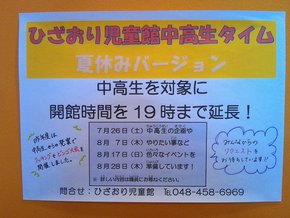 ひざおり児童館中高生タイム
夏休みバージョン
中高生を対象に
開館時間を19時まで延長!
7月26日(土) 中高生の企画や
8月 7日(木) やりたい事など
8月17日(日) 色々なイベントを
8月28日(木) 準備しています!!
※詳細は職員にお尋ねください。
昨年度は
中高生からの発案で
クッキング&ビンゴ大会を
開催しました。
みんなからの
リクエストを
お待ちしています!!
問合せ:ひざおり児童館 ℡048-458-6969